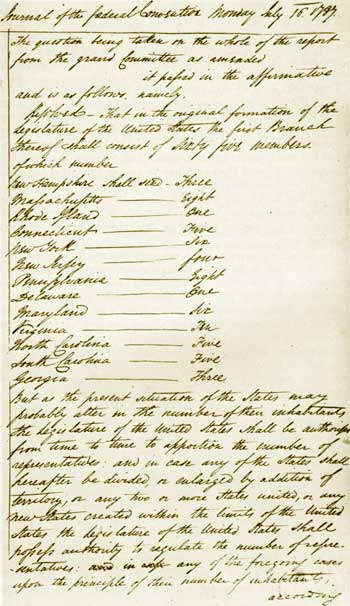 Journal of the federal Convention Monday July 16. 1787.
The question being taken on the whole of the report
from the grand Committee as amended
it passed in the affirmative
and is as follows, namely,
Resolved – That in the original formation of the
Legislature of the United States the first Branch
thereof shall consist of Sixty five members.
of which number
New Hampshire shall send – Three
Massachusetts ——— Eight
Rhode Island ——— One
Connecticut ——— Five
New York ——— Six
New Jersey ——— four
Pensylvania ——— Eight
Delaware ——— One
Maryland ——— Six
Virginia ——— Ten
North Carolina ——— Five
South Carolina ——— Five
Georgia ——— Three
But as the present situation of the States may
probably alter in the number of their inhabitants
the Legislature of the United States shall be authorized
from time to time to apportion the number of
representatives: and in case any of the States shall
hereafter be divided, or enlarged by addition of
territory, or any two or more States united, or any
new States created within the limits of the United
States the Legislature of the United States shall
possess authority to regulate the number of repre-
-sentatives: in any of the foregoing cases
upon the principle of their number of inhabitants,
according